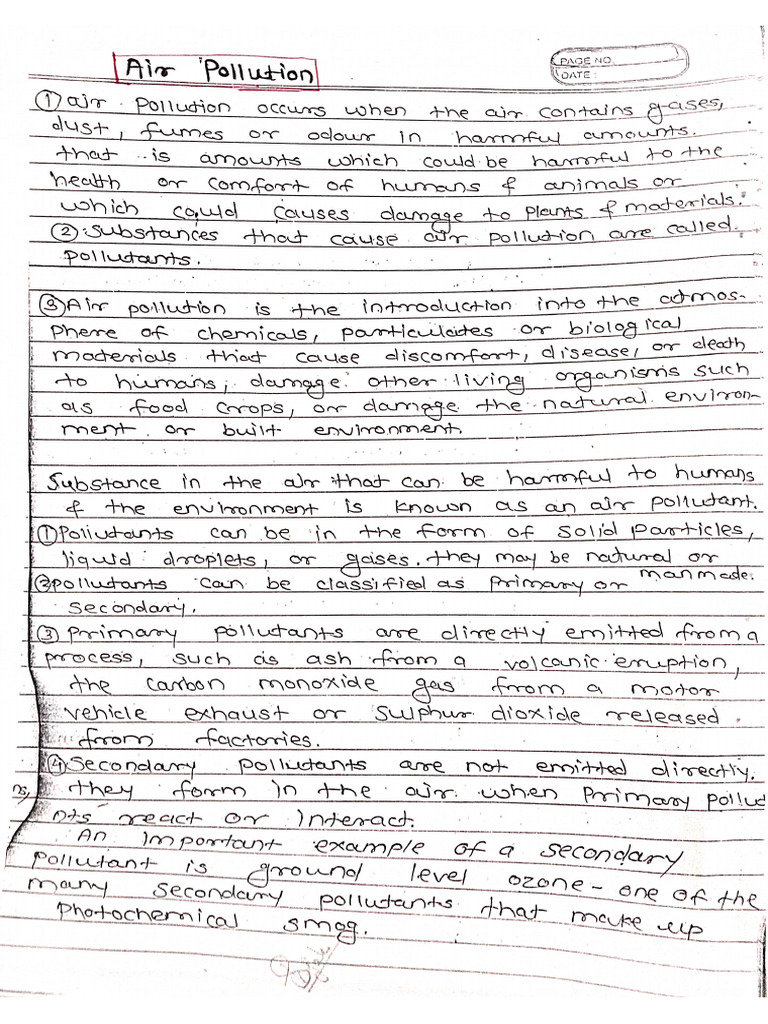 Air Pollution
PAGE NO.
DATE:
① air pollution occurs when the air contains gases,
dust, fumes or odour in harmful amounts.
that is amounts which could be harmful to the
health or comfort of humans & animals or
which could causes damage to plants & materials.
② substances that cause air pollution are called
pollutants.
③ Air pollution is the introduction into the atmos-
phere of chemicals, particulates or biological
materials that cause discomfort, disease, or death
to humans, damage other living organisms such
as food crops, or damage the natural environ-
ment or built environment.
Substance in the air that can be harmful to humans
& the environment is known as an air pollutant.
① Pollutants can be in the form of solid particles,
liquid droplets, or gases. they may be natural or
manmade.
② pollutants can be classified as primary or
secondary.
③ primary pollutants are directly emitted from a
process, such as ash from a volcanic eruption,
the carbon monoxide gas from a motor
vehicle exhaust or sulphur dioxide released
from factories.
④ Secondary pollutants are not emitted directly.
they form in the air when primary pollu
nts react or interact.
An important example of a secondary
pollutant is ground level ozone - one of the
many secondary pollutants that make up
photochemical smog.